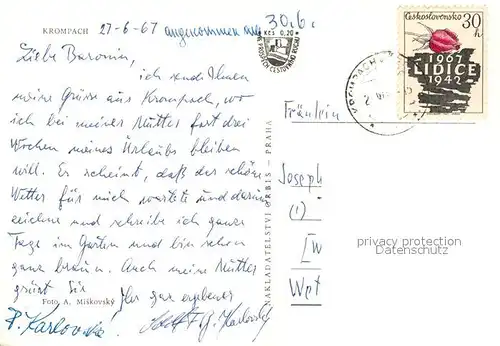 KROMPACH 27-6-67 angenommen am 30.6.
Liebe Baronin,
ich sende Ihnen
meine Grüsse aus Krompach, wo
ich bei meiner Mutter fast drei
Wochen meines Urlaubs bleiben
will. Es scheint, daß der schöne
Wetter für mich wartete und darum
zeichne und schreibe ich ganze
Tage im Garten und bin schon
ganz braun. Auch meine Mutter
grüsst Sie
Foto A. Miškovský
Ihr ganz ergebener
P. Karlovská
Karlovský
NAKLADATELSTVÍ ORBIS - PRAHA
Kčs 0,20
VE PROSPĚCH CESTOVNÍHO RUCHU
Československo
30h
1967
LIDICE
1942
KROMPACH
Fräulein
Joseph
(1)
Wet
privacy protection
Datenschutz